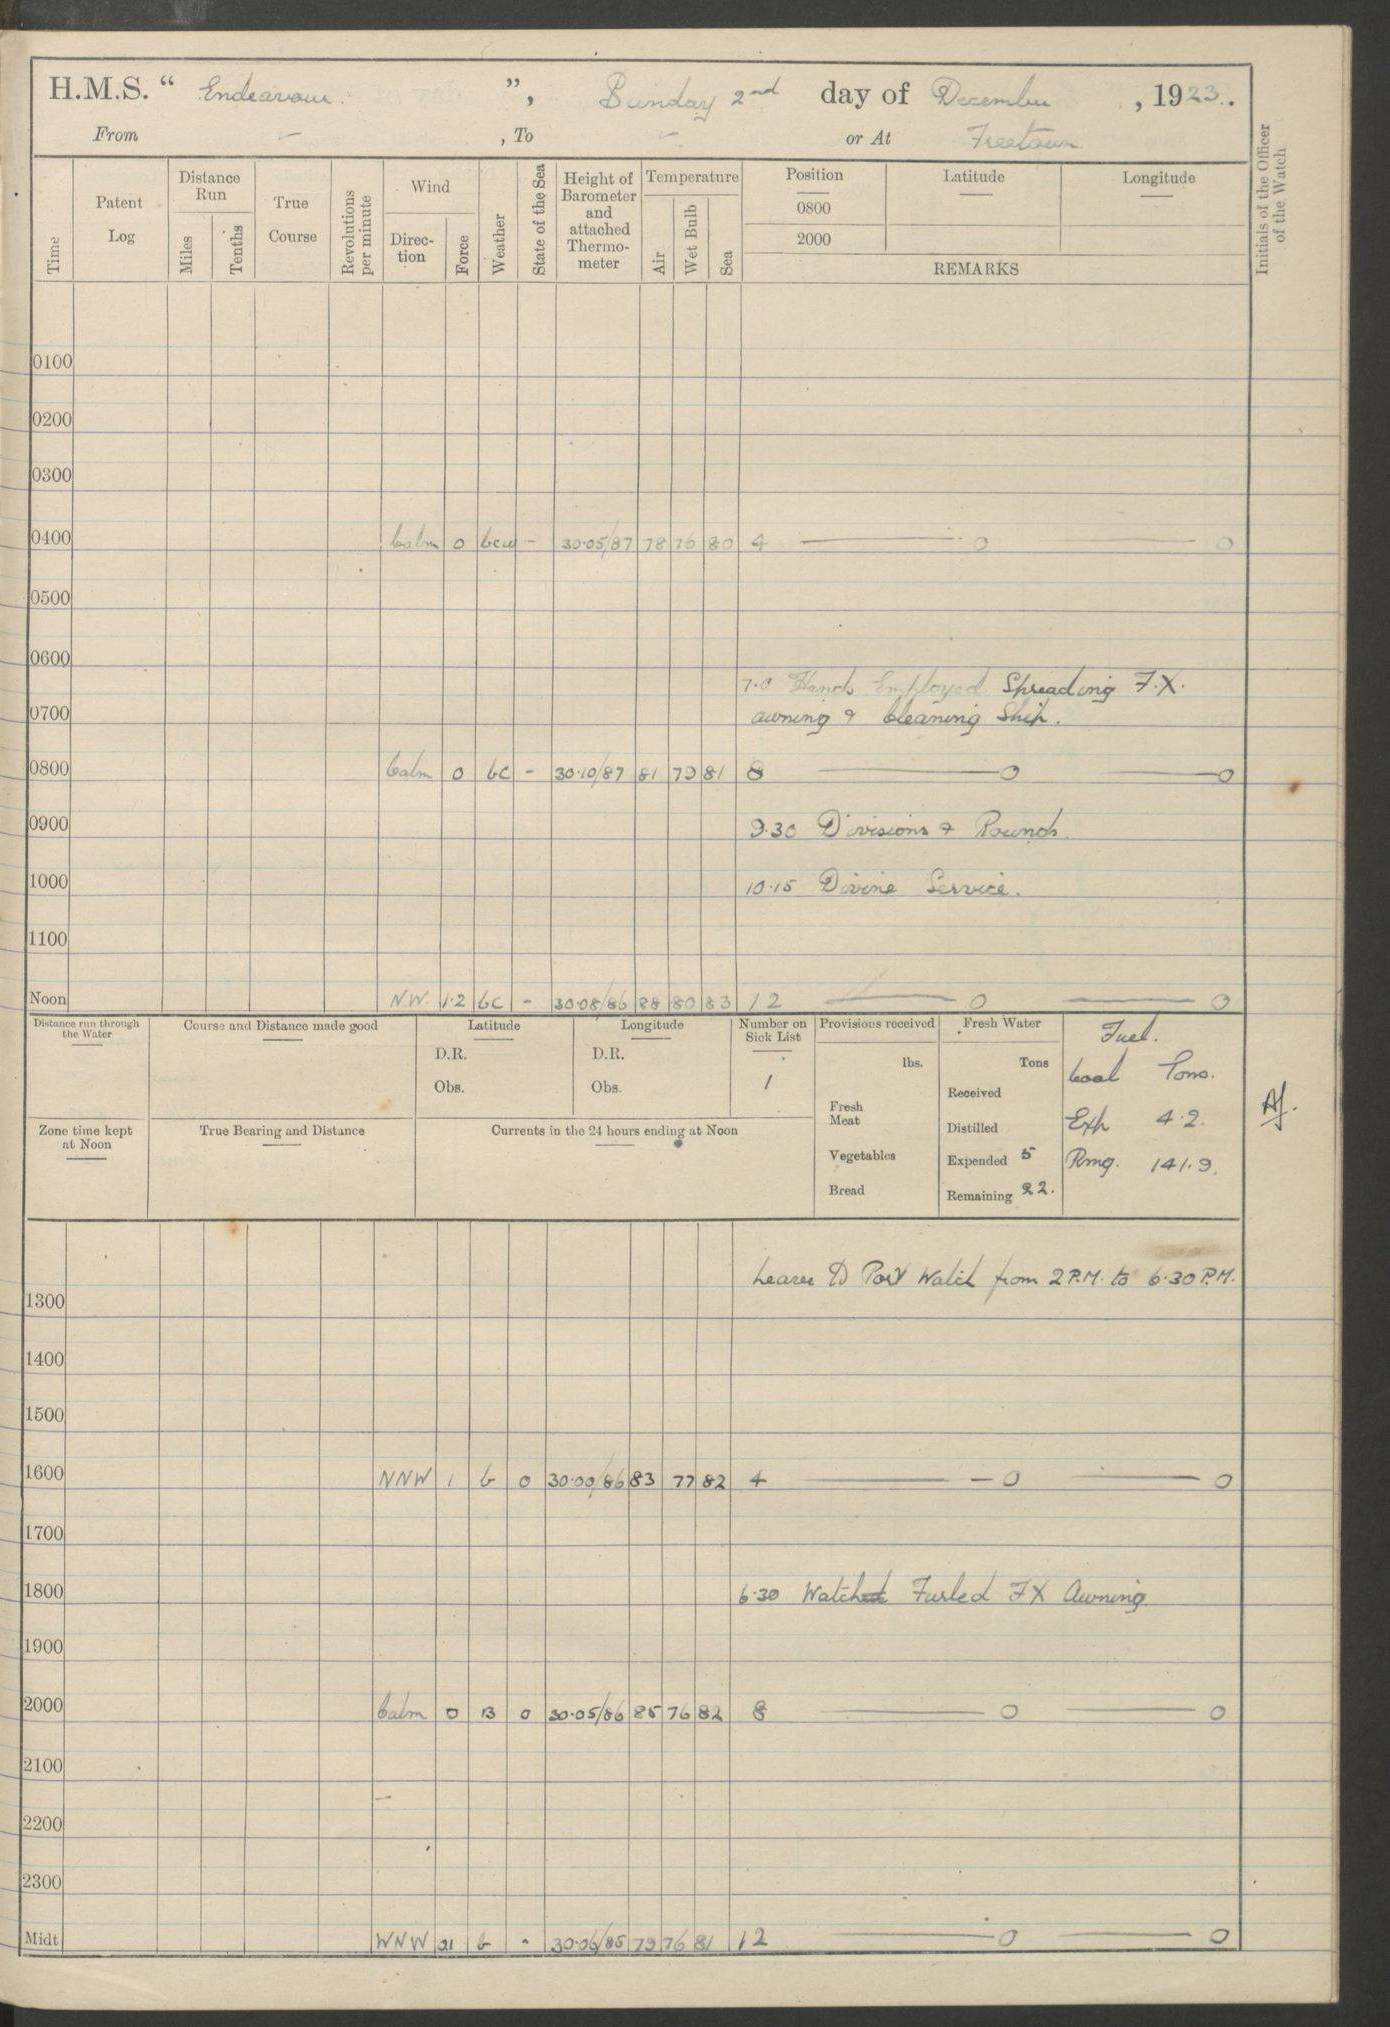 H.M.S. " Endeavour. ", Sunday 2nd day of December, 1923.
From - , To - or At Freetown
Time
Patent Log
Distance Run
Miles
Tenths
True Course
Revolutions per minute
Wind
Direc-tion
Force
Weather
State of the Sea
Height of Barometer and attached Thermo-meter
Temperature
Air
Wet Bulb
Sea
Position
0800
2000
Latitude
Longitude
REMARKS
Initials of the Officer of the Watch
0100
0200
0300
0400 Calm 0 bcw - 30.05/87 78 76 80 4 — 0 — 0
0500
0600
7.0 Hands Employed Spreading F.X.
0700 awning & Cleaning Ship.
0800 Calm 0 bc - 30.10/87 81 79 81 8 — 0 — 0
0900 9.30 Divisions & Rounds.
1000 10.15 Divine Service.
1100
Noon N.W. 1.2 bc - 30.08/86 88 80 83 12 — 0 — 0
Distance run through the Water
Course and Distance made good
Latitude
D.R.
Obs.
Longitude
D.R.
Obs.
Number on Sick List
1
Provisions received
lbs.
Fresh Meat
Vegetables
Bread
Fresh Water
Tons
Received
Distilled
Expended 5
Remaining 22.
Fuel.
Coal Tons.
Exp 4.2.
Rmg. 141.9.
Zone time kept at Noon
True Bearing and Distance
Currents in the 24 hours ending at Noon
Leave to Port Watch from 2 P.M. to 6.30 P.M.
1300
1400
1500
1600 NNW 1 b 0 30.00/86 83 77 82 4 — 0 — 0
1700
1800 6.30 Watch Furled FX Awning
1900
2000 Calm 0 B 0 30.05/86 85 76 82 8 — 0 — 0
2100
2200
2300
Midt WNW b - 30.06/85 79 76 81 12 — 0 — 0